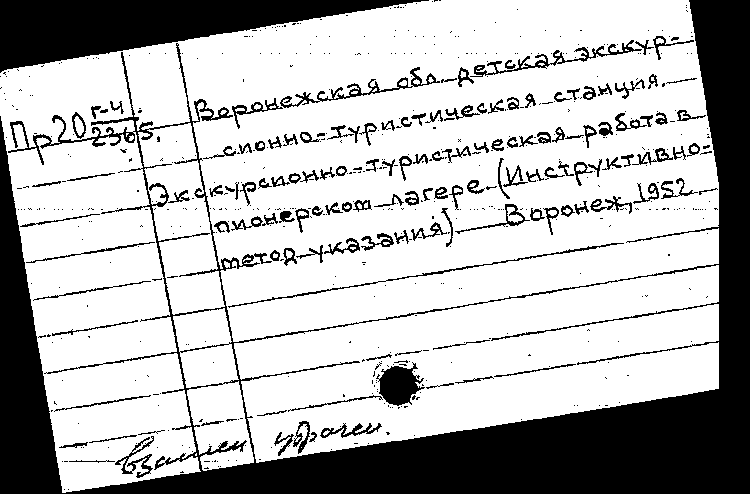 Пр20 г-4.
2365.
Воронежская обл. детская экскур-
сионно-туристическая станция.
Экскурсионно-туристическая работа в
пионерском лагере. (Инструктивно-
метод. указания) Воронеж, 1952.
взамен утрачен.